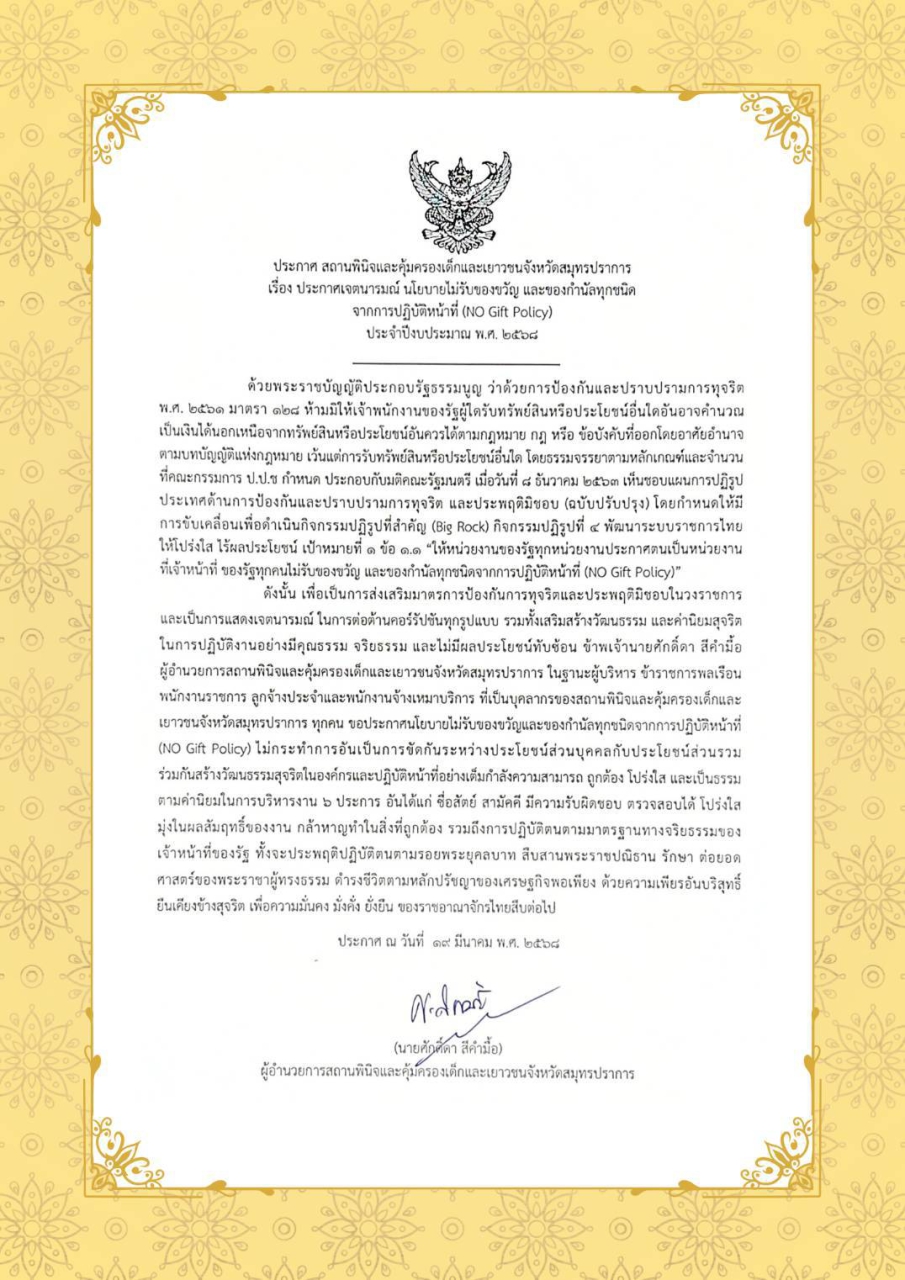 ประกาศ สถานพินิจและคุ้มครองเด็กและเยาวชนจังหวัดสมุทรปราการ
เรื่อง ประกาศเจตนารมณ์ นโยบายไม่รับของขวัญ และของกำนัลทุกชนิด
จากการปฏิบัติหน้าที่ (NO Gift Policy)
ประจำปีงบประมาณ พ.ศ. ๒๕๖๘
ด้วยพระราชบัญญัติประกอบรัฐธรรมนูญ ว่าด้วยการป้องกันและปราบปรามการทุจริต
พ.ศ. ๒๕๖๑ มาตรา ๑๒๘ ห้ามมิให้เจ้าพนักงานของรัฐผู้ใดรับทรัพย์สินหรือประโยชน์อื่นใดอันอาจคำนวณ
เป็นเงินได้นอกเหนือจากทรัพย์สินหรือประโยชน์อันควรได้ตามกฎหมาย กฎ หรือ ข้อบังคับที่ออกโดยอาศัยอำนาจ
ตามบทบัญญัติแห่งกฎหมาย เว้นแต่การรับทรัพย์สินหรือประโยชน์อื่นใด โดยธรรมจรรยาตามหลักเกณฑ์และจำนวน
ที่คณะกรรมการ ป.ป.ช กำหนด ประกอบกับมติคณะรัฐมนตรี เมื่อวันที่ ๘ ธันวาคม ๒๕๖๓ เห็นชอบแผนการปฏิรูป
ประเทศด้านการป้องกันและปราบปรามการทุจริต และประพฤติมิชอบ (ฉบับปรับปรุง) โดยกำหนดให้มี
การขับเคลื่อนเพื่อดำเนินกิจกรรมปฏิรูปที่สำคัญ (Big Rock) กิจกรรมปฏิรูปที่ ๔ พัฒนาระบบราชการไทย
ให้โปร่งใส ไร้ผลประโยชน์ เป้าหมายที่ ๑ ข้อ ๑.๑ “ให้หน่วยงานของรัฐทุกหน่วยงานประกาศตนเป็นหน่วยงาน
ที่เจ้าหน้าที่ ของรัฐทุกคนไม่รับของขวัญ และของกำนัลทุกชนิดจากการปฏิบัติหน้าที่ (NO Gift Policy)”
ดังนั้น เพื่อเป็นการส่งเสริมมาตรการป้องกันการทุจริตและประพฤติมิชอบในวงราชการ
และเป็นการแสดงเจตนารมณ์ ในการต่อต้านคอร์รัปชันทุกรูปแบบ รวมทั้งเสริมสร้างวัฒนธรรม และค่านิยมสุจริต
ในการปฏิบัติงานอย่างมีคุณธรรม จริยธรรม และไม่มีผลประโยชน์ทับซ้อน ข้าพเจ้านายศักดิ์ดา สีคำมื้อ
ผู้อำนวยการสถานพินิจและคุ้มครองเด็กและเยาวชนจังหวัดสมุทรปราการ ในฐานะผู้บริหาร ข้าราชการพลเรือน
พนักงานราชการ ลูกจ้างประจำและพนักงานจ้างเหมาบริการ ที่เป็นบุคลากรของสถานพินิจและคุ้มครองเด็กและ
เยาวชนจังหวัดสมุทรปราการ ทุกคน ขอประกาศนโยบายไม่รับของขวัญและของกำนัลทุกชนิดจากการปฏิบัติหน้าที่
(NO Gift Policy) ไม่กระทำการอันเป็นการขัดกันระหว่างประโยชน์ส่วนบุคคลกับประโยชน์ส่วนรวม
ร่วมกันสร้างวัฒนธรรมสุจริตในองค์กรและปฏิบัติหน้าที่อย่างเต็มกำลังความสามารถ ถูกต้อง โปร่งใส และเป็นธรรม
ตามค่านิยมในการบริหารงาน ๖ ประการ อันได้แก่ ซื่อสัตย์ สามัคคี มีความรับผิดชอบ ตรวจสอบได้ โปร่งใส
มุ่งในผลสัมฤทธิ์ของงาน กล้าหาญทำในสิ่งที่ถูกต้อง รวมถึงการปฏิบัติตนตามมาตรฐานทางจริยธรรมของ
เจ้าหน้าที่ของรัฐ ทั้งจะประพฤติปฏิบัติตนตามรอยพระยุคลบาท สืบสานพระราชปณิธาน รักษา ต่อยอด
ศาสตร์ของพระราชาผู้ทรงธรรม ดำรงชีวิตตามหลักปรัชญาของเศรษฐกิจพอเพียง ด้วยความเพียรอันบริสุทธิ์
ยืนเคียงข้างสุจริต เพื่อความมั่นคง มั่งคั่ง ยั่งยืน ของราชอาณาจักรไทยสืบต่อไป
ประกาศ ณ วันที่ ๑๙ มีนาคม พ.ศ. ๒๕๖๘
(นายศักดิ์ดา สีคำมื้อ)
ผู้อำนวยการสถานพินิจและคุ้มครองเด็กและเยาวชนจังหวัดสมุทรปราการ